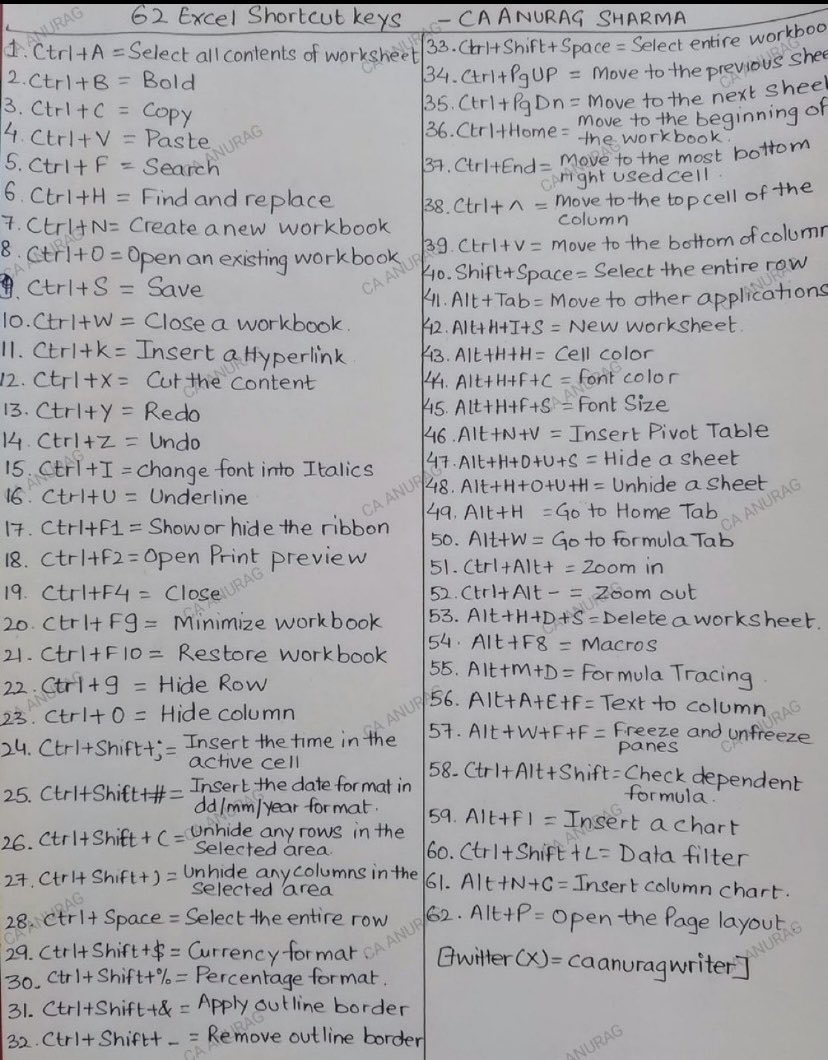 62 Excel Shortcut keys - CA ANURAG SHARMA
1. Ctrl+A = Select all contents of worksheet
2. Ctrl+B = Bold
3. Ctrl+C = Copy
4. Ctrl+V = Paste
5. Ctrl+F = Search
6. Ctrl+H = Find and replace
7. Ctrl+N= Create a new workbook
8. Ctrl+O = Open an existing workbook
9. Ctrl+S = Save
10. Ctrl+W = Close a workbook.
11. Ctrl+k = Insert a Hyperlink
12. Ctrl+X = Cut the content
13. Ctrl+Y = Redo
14. Ctrl+Z = Undo
15. Ctrl+I = change font into Italics
16. Ctrl+U = Underline
17. Ctrl+F1 = Show or hide the ribbon
18. Ctrl+F2 = Open Print preview
19. Ctrl+F4 = Close
20. Ctrl+F9 = Minimize workbook
21. Ctrl+F10 = Restore workbook
22. Ctrl+9 = Hide Row
23. Ctrl+0 = Hide column
24. Ctrl+Shift+; = Insert the time in the
active cell
25. Ctrl+Shift+# = Insert the date format in
dd/mm/year format.
26. Ctrl+Shift+( = Unhide any rows in the
Selected area.
27. Ctrl+Shift+) = Unhide any columns in the
selected area
28. Ctrl+Space = Select the entire row
29. Ctrl+Shift+$ = Currency format
30. Ctrl+Shift+% = Percentage format.
31. Ctrl+Shift+& = Apply outline border
32. Ctrl+Shift+_ = Remove outline border
33. Ctrl+Shift+Space = Select entire workboo
34. Ctrl+PgUP = Move to the previous shee
35. Ctrl+PgDn = Move to the next sheet
36. Ctrl+Home = move to the beginning of
the workbook.
37. Ctrl+End = Move to the most bottom
right used cell.
38. Ctrl+^ = Move to the top cell of the
column
39. Ctrl+v = move to the bottom of column
40. Shift+Space = Select the entire row
41. Alt+Tab = Move to other applications
42. Alt+H+I+S = New worksheet.
43. Alt+H+H = Cell color
44. Alt+H+F+C = font color
45. Alt+H+f+S = Font Size
46. Alt+N+V = Insert Pivot Table
47. Alt+H+O+U+S = Hide a sheet
48. Alt+H+O+U+H = Unhide a sheet
49. Alt+H = Go to Home Tab
50. Alt+W = Go to formula Tab
51. Ctrl+Alt+ = Zoom in
52. Ctrl+Alt - = Zoom out
53. Alt+H+D+S = Delete a worksheet.
54. Alt+F8 = Macros
55. Alt+M+D = Formula Tracing
56. Alt+A+E+F = Text to column
57. Alt+W+F+F = Freeze and unfreeze
panes
58. Ctrl+Alt+Shift = Check dependent
formula.
59. Alt+F1 = Insert a chart
60. Ctrl+Shift+L = Data filter
61. Alt+N+C = Insert column chart.
62. Alt+P = Open the Page layout
[Twitter(X) = caanuragwriter]
CA ANURAG